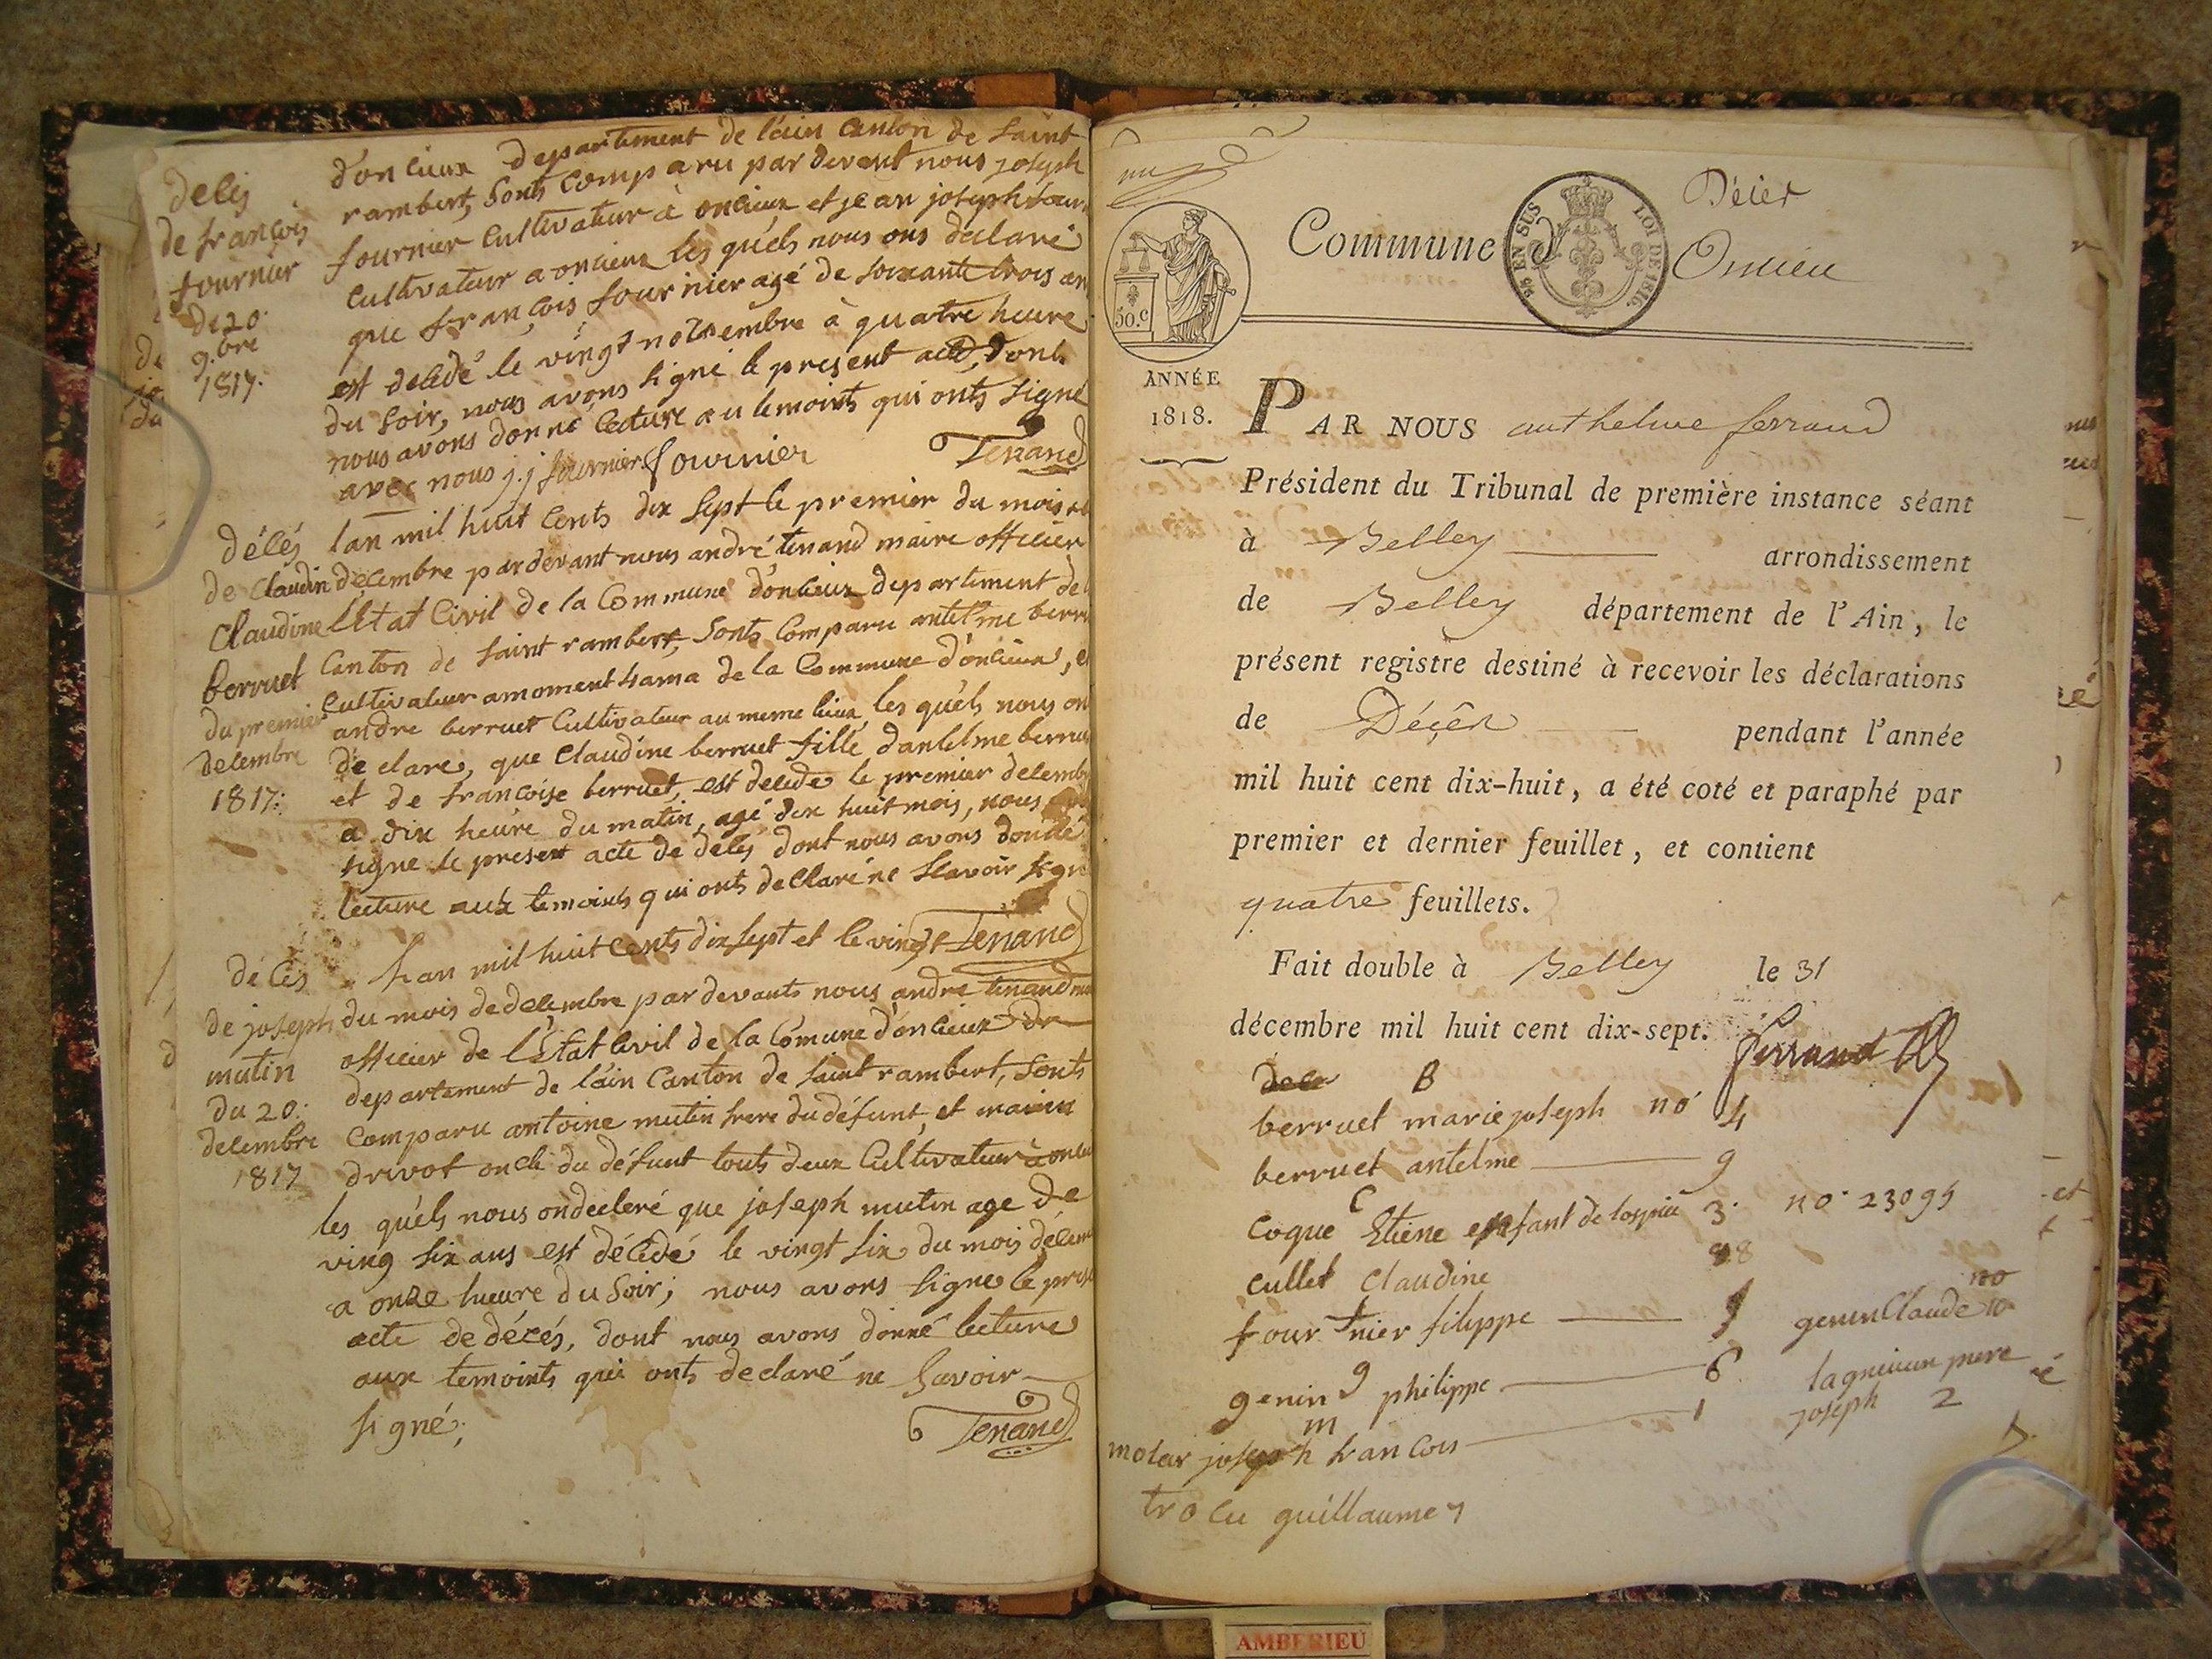 décés
de françois
fournier
du 20
9.bre
1817.
d'oncieux departement de l'ain canton de saint
rambert, sonts comparu par devent nous joseph
fournier cultivateur à oncieux et jean joseph four
cultivateur a oncieux les quels nous ons déclaré
que françois fournier agé de soixante trois an
est décédé le vingt novembre à quatre heure
du soir, nous avons signé le present acte, dont
nous avons donné lecture au temoints qui onts signé
avec nous j.j fournier fournier Tenand
décés
de claudin
claudine
berruet
du premier
decembre
1817:
lan mil huit cents dix sept le premier du mois de
decembre pardevant nous andré tenand maire officier
de L'Etat Civil de la Commune d'oncieux departement de
canton de saint rambert, sonts comparu antelme berru
cultivateur a moment sama de la commune d'oncieux, e
andre berruet cultivateur au meme lieux, les quels nous on
déclare, que Claudine berruet fille dantelme berru
et de francoise berruet, est decede le premier decemb
a dix heure du matin, agé dix huit mois, nous
signe le present acte de décés dont nous avons donné
lecture aux temoints qui onts declaré ne scavoir sign
Tenand
décés
de joseph
mutin
du 20.
decembre
1817
Lan mil huit cents dix sept et le vingt
du mois de decembre par devants nous andre tenand m
officier de l'Etat civil de la comune d'oncieux de
departement de l'ain Canton de saint rambert, sonts
comparu antoine mutin frere du défunt, et
drivot oncle du défunt touts deux Cultivateur à oncie
les quéls nous on decleré que joseph mutin age de
ving six ans est décédé le vingt six du mois decem
a onze heure du soir; nous avons signe le pres
acte de décés, dont nous avons donné lecture
aux temoints qui onts declaré ne Savoir
signé;
Tenand
Commune d
Décès
Oncieu
25 EN SUS
LOI DE 1816.
50.c
ANNÉE
1818.
PAR NOUS anthelme ferrand
Président du Tribunal de première instance séant
à Belley arrondissement
de Belley département de l'Ain, le
présent registre destiné à recevoir les déclarations
de Décès pendant l'année
mil huit cent dix-huit, a été coté et paraphé par
premier et dernier feuillet, et contient
quatre feuillets.
Fait double à Belley le 31
décembre mil huit cent dix-sept.
ferrand
B
berruet marie joseph no 4
berruet antelme 9
C
coque Etiene enfant de lospice 3. no. 23095
cullet claudine 8
f
fournier filippe
g
genin philippe 6
genin Claude 10
m
molar joseph francois 1
joseph 2
trocu guillaume 7
AMBERIEU